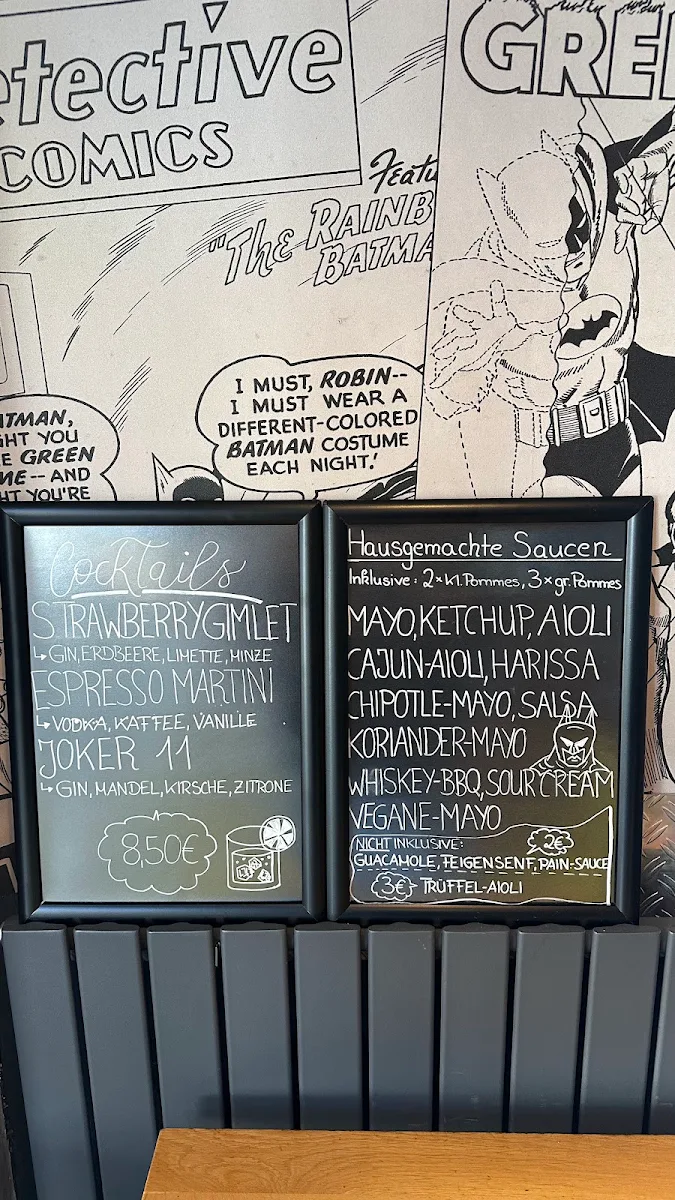 etective
COMICS
GREE
Featu
"THE RAINB
BATMA
I MUST, ROBIN--
I MUST WEAR A
DIFFERENT-COLORED
BATMAN COSTUME
EACH NIGHT.'
ATMAN,
GHT YOU
E GREEN
ME -- AND
HT YOU'RE
Cocktails
STRAWBERRYGIMLET
↳ GIN, ERDBEERE, LIMETTE, MINZE
ESPRESSO MARTINI
↳ VODKA, KAFFEE, VANILLE
JOKER 11
↳ GIN, MANDEL, KIRSCHE, ZITRONE
8,50€
Hausgemachte Saucen
Inklusive: 2×kl.Pommes, 3×gr.Pommes
MAYO, KETCHUP, AIOLI
CAJUN-AIOLI, HARISSA
CHIPOTLE-MAYO, SALSA
KORIANDER-MAYO
WHISKEY-BBQ, SOUR CREAM
VEGANE-MAYO
NICHT INKLUSIVE: 2€
GUACAMOLE, FEIGENSENF, PAIN-SAUCE
3€ TRÜFFEL-AIOLI